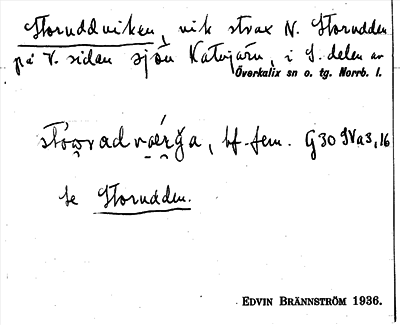 Storuddviken, vik strax N. Storudden
på V. sidan sjön Katujärn, i S. delen av
Överkalix sn o. tg. Norrb. l.
bf. fem. G30 IVa3,16
se Storudden.
EDVIN BRÄNNSTRÖM 1936.